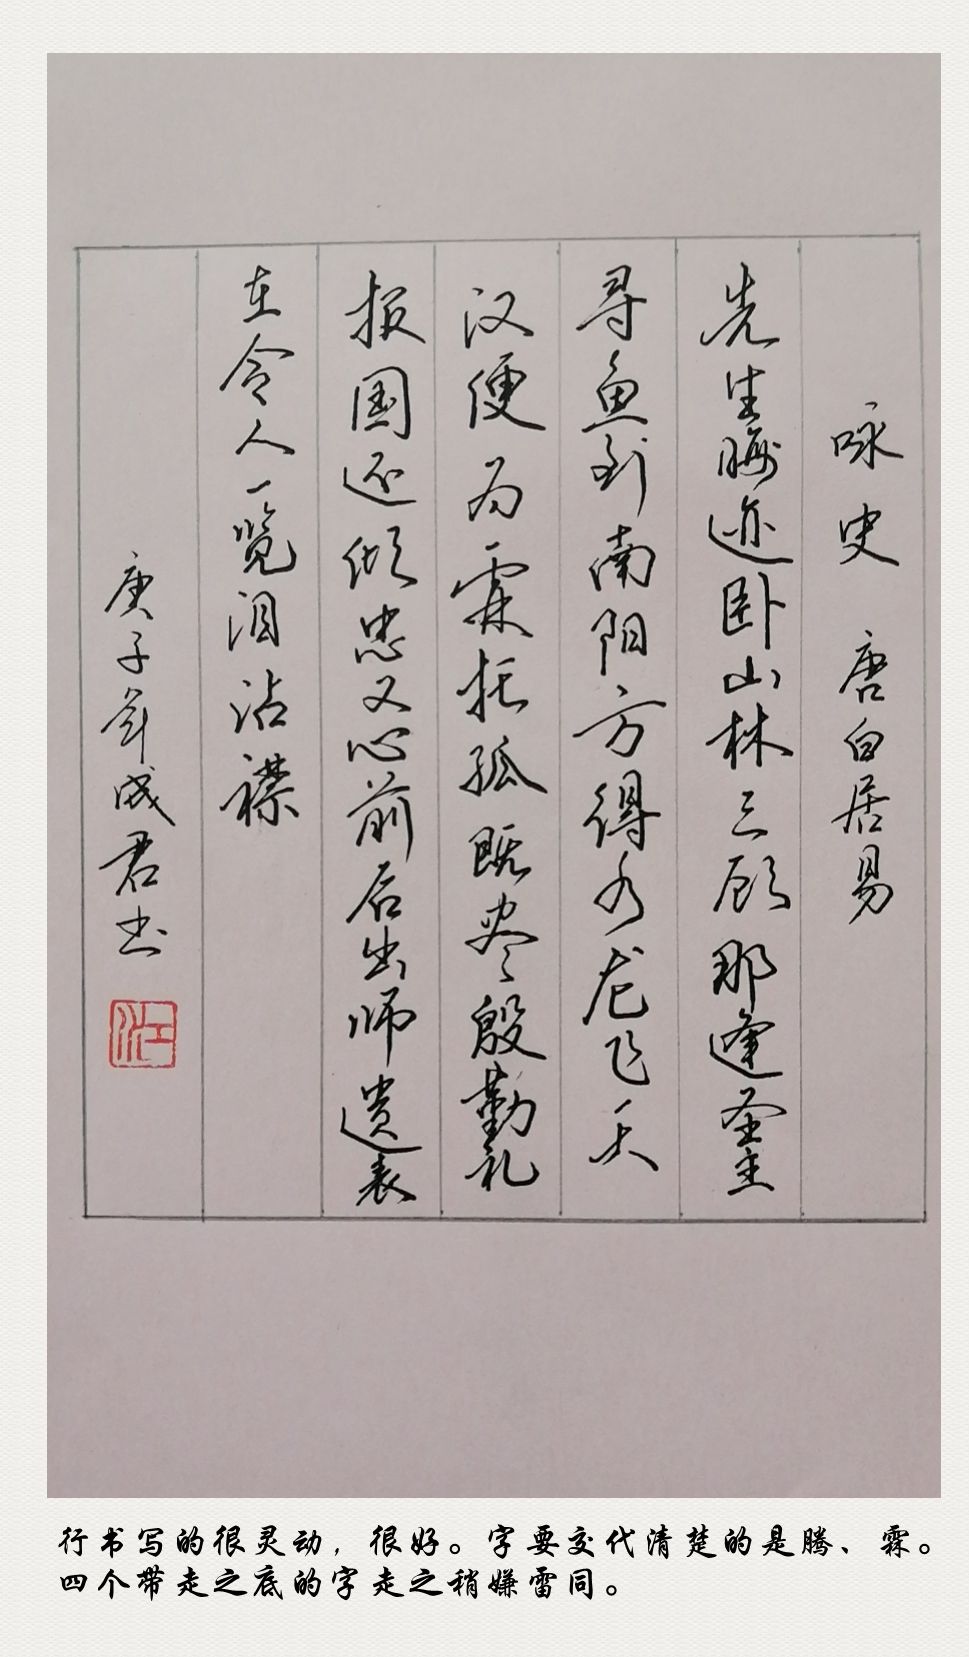 咏史 唐白居易
先生晦迹卧山林三顾那逢圣主
寻鱼到南阳方得水龙飞天
汉便为霖托孤既尽殷勤礼
报国还倾忠义心前后出师遗表
在令人一览泪沾襟
庚子年成君书
江
行书写的很灵动，很好。字要交代清楚的是腾、霖。
四个带走之底的字走之稍嫌雷同。